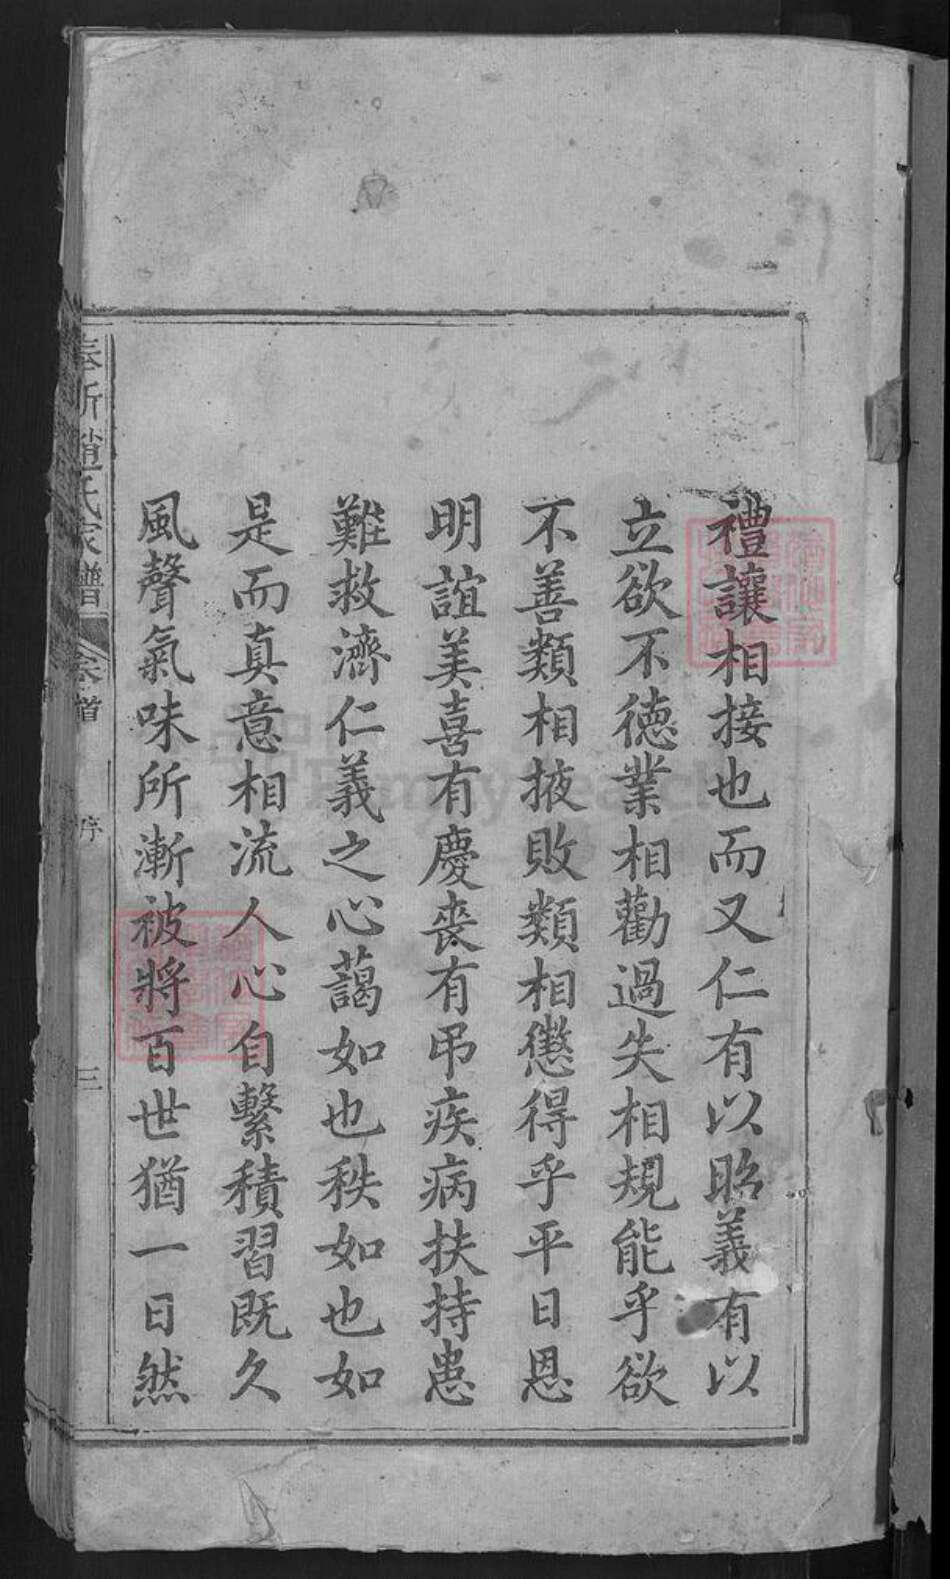 禮讓相接也而又仁有以昭義有以
立欲不德業相勸過失相規能乎欲
不善類相掖敗類相懲得乎平日恩
明誼美喜有慶喪有弔疾病扶持患
難救濟仁義之心藹如也秩如也如
是而真意相流人心自繫積習既久
風聲氣味所漸被將百世猶一日然
奉新趙氏家譜 卷首 序 三
FamilySearch